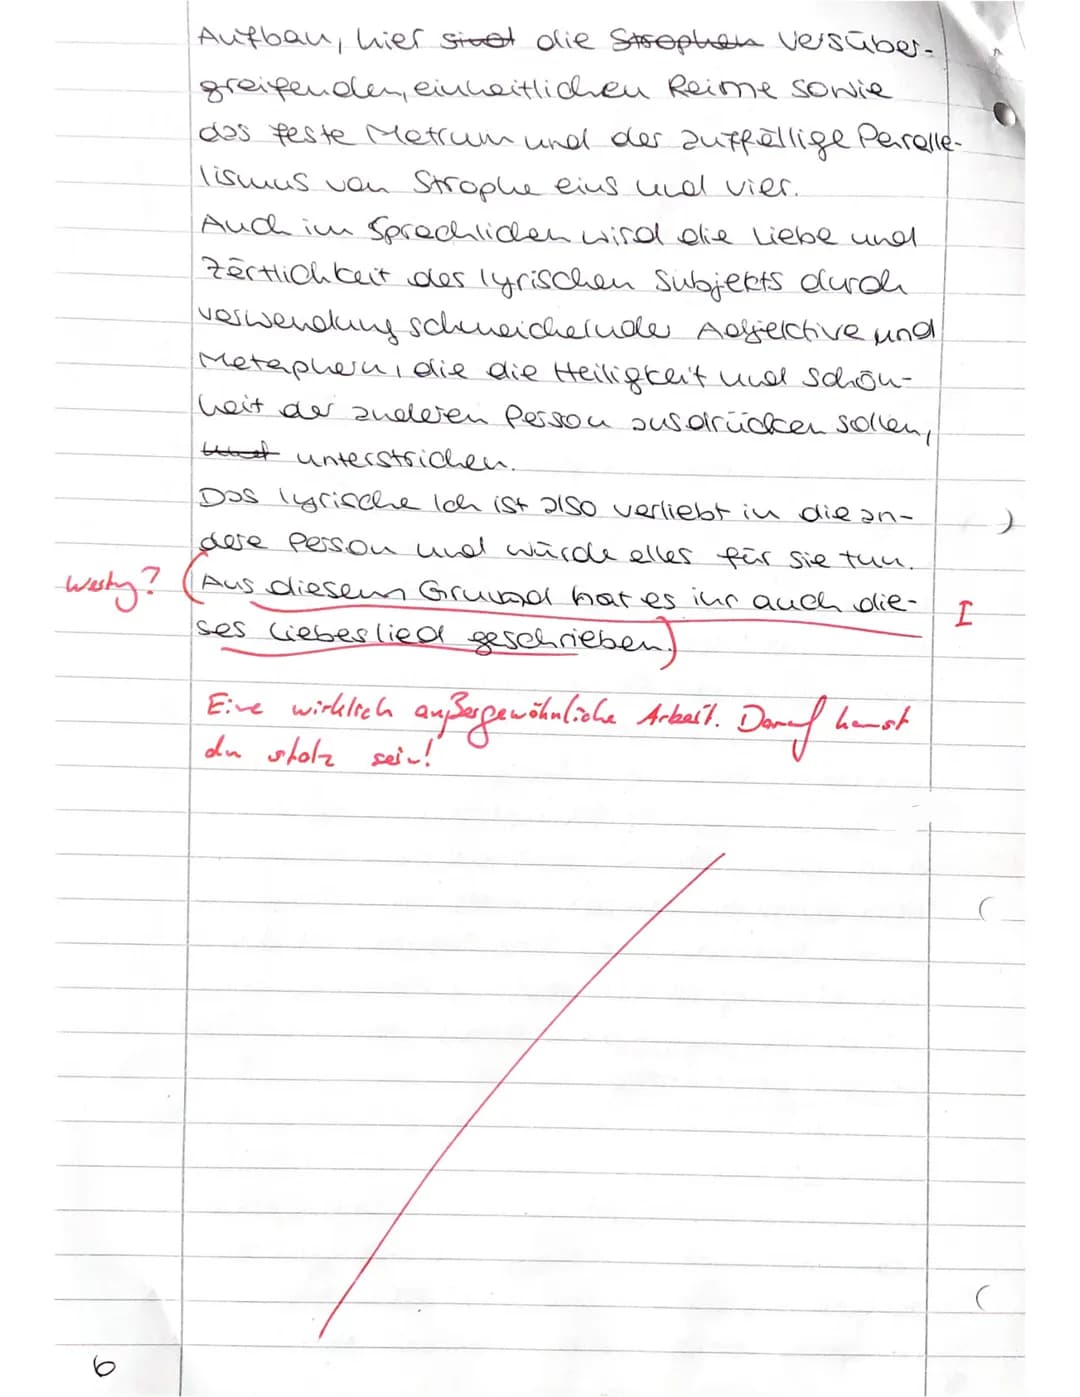 Aufbau, hier sind die Strophen versüber-
greifenden, einheitlichen Reime sowie
das feste Metrum und der auffällige Paralle-
lismus von Strophe eins und vier.
Auch im Sprachlichen wird die Liebe und
Zärtlichkeit des lyrischen Subjekts durch
verwendung schmeichelnder Adjektive und
Metaphern, die die Heiligkeit und Schön-
heit der anderen Person ausdrücken sollen,
und unterstrichen.
Das lyrische Ich ist also verliebt in die an-
dere Person und würde alles für sie tun.
(Aus diesem Grund hat es ihr auch die- I
ses Liebeslied geschrieben.)
Eine wirklich außergewöhnliche Arbeit. Darauf kannst
du stolz sein!
6